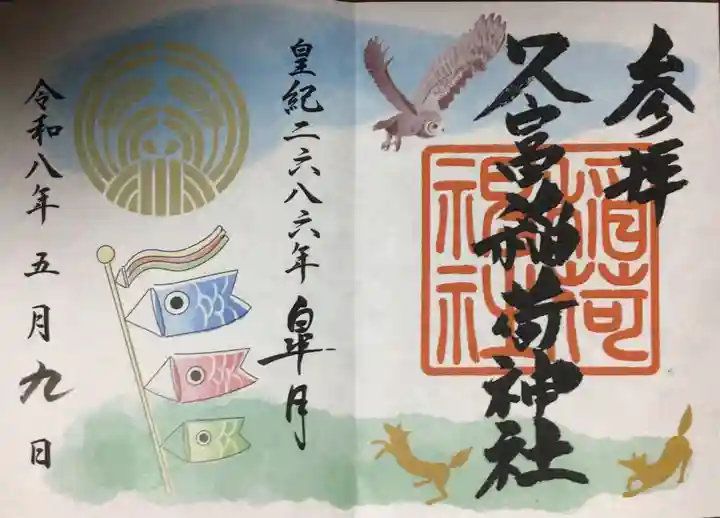 参拝
久富稲荷神社
稲荷
神社
皇紀二六八六年 皐月
令和八年 五月九日